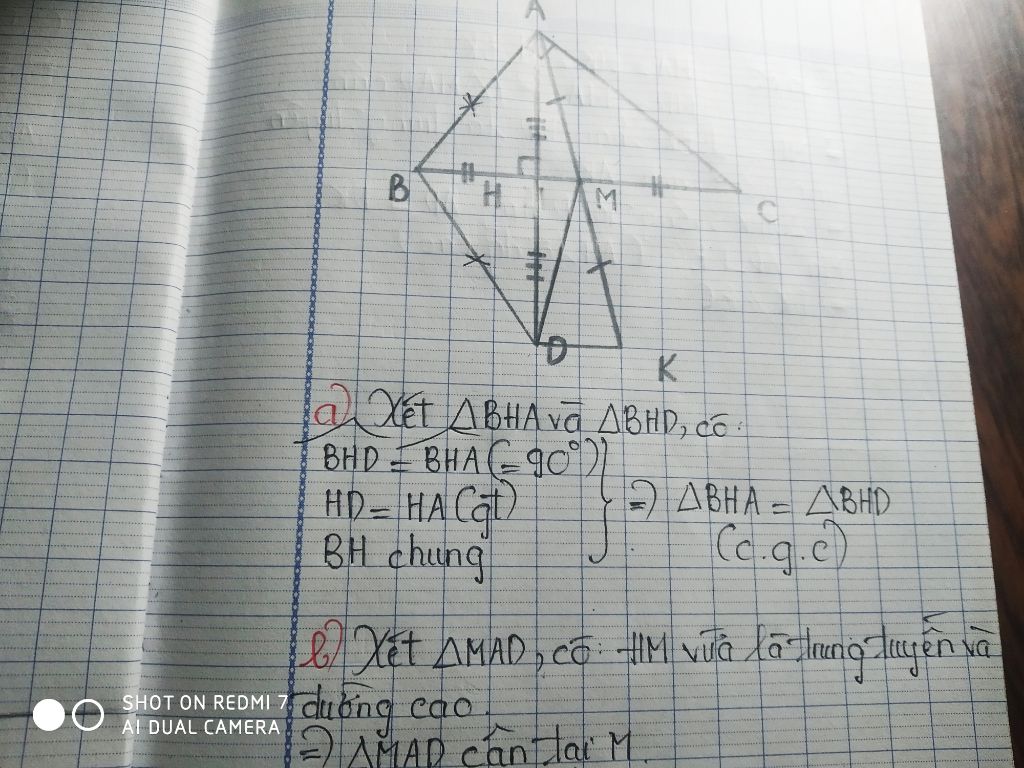 A
B
H
M
C
D
K
a) Xét △BHA và △BHD, có:
BHD = BHA (= 90°)
HD = HA (gt)
BH chung
⇒ △BHA = △BHD
(c.g.c)
b) Xét △MAD, có: HM vừa là trung tuyến và
đường cao.
⇒ △MAD cân tại M.
SHOT ON REDMI 7
AI DUAL CAMERA